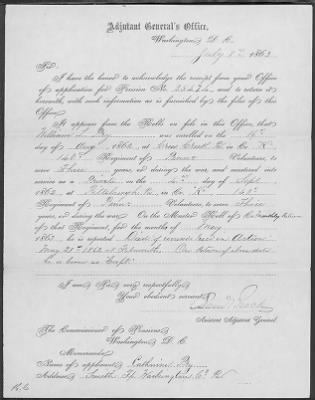 Adjutant General's Office,
Washington D. C.
July 8th 1863
Sir:
I have the honor to acknowledge the receipt from your Office
of application for Pension No. 23474, and to return it
herewith, with such information as is furnished by the files of this
Office.
It appears from the Rolls on file in this Office, that
William was enrolled on the 14th
day of Aug 1862, at Cross Creek Pa in Co. "K"
140th Regiment of Penna Volunteers, to serve
Three years, or during the war, and mustered into
service as a Private on the 4 day of Sept
1862, at Pittsburgh Pa, in Co. "K" 140th
Regiment of Penna Volunteers, to serve Three
years, or during the war. On the Muster Roll of Co.
of that Regiment, for the months of May
1863, he is reported Died of wounds recd in Action
May 1863 at Falmouth.
I am, Sir, very respectfully,
Your obedient servant,
Assistant Adjutant General.
The Commissioner of Pensions
Washington D. C.
Memoranda:
Name of applicant, Catharine
Address, Smith Tp Washington Co Pa